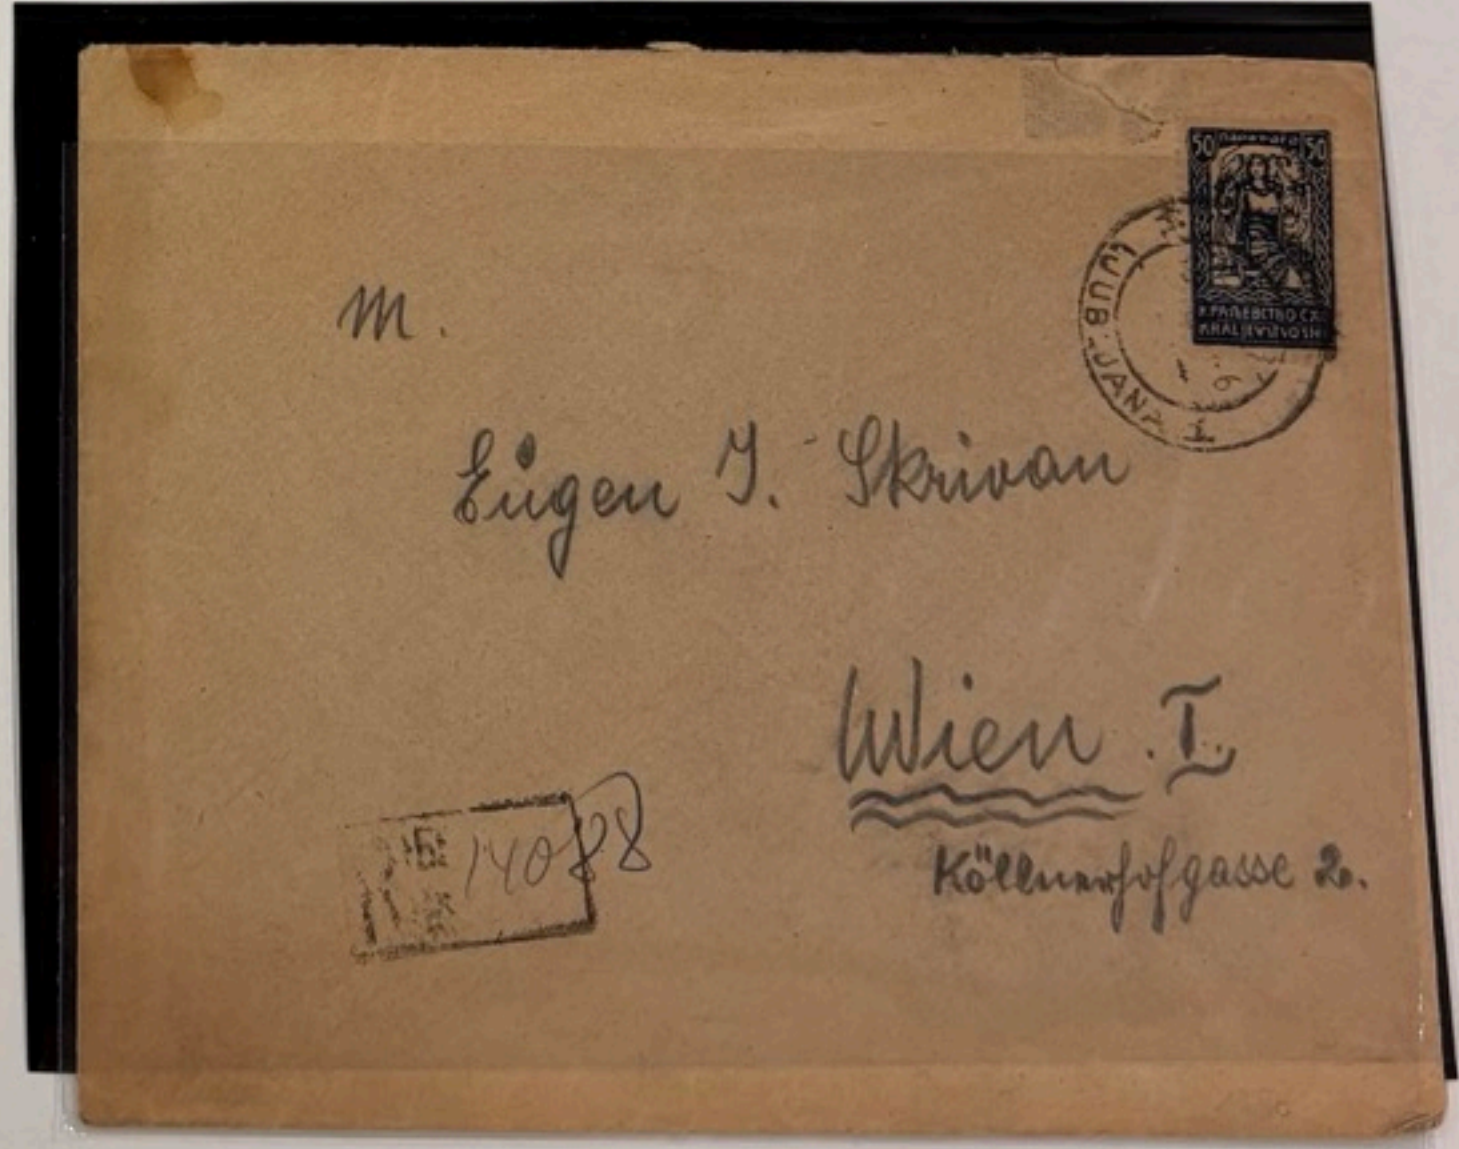 50 50
КРАЉЕВСТВО СХ
KRALJEVSTVO SH
LJUBLJANA 1
M.
Eugen I. Skrivan
Wien . I.
Köllnerhofgasse 2.
14088